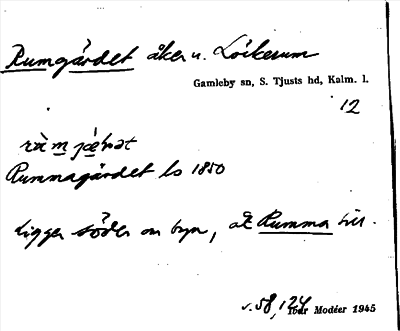 Rumgärdet åker u. Löckerum
Gamleby sn, S. Tjusts hd, Kalm. l.
12
Rummagärdet ls 1850
Ligger söder om byn, åt Rumma till.
v. 58, 124
Ivar Modéer 1945